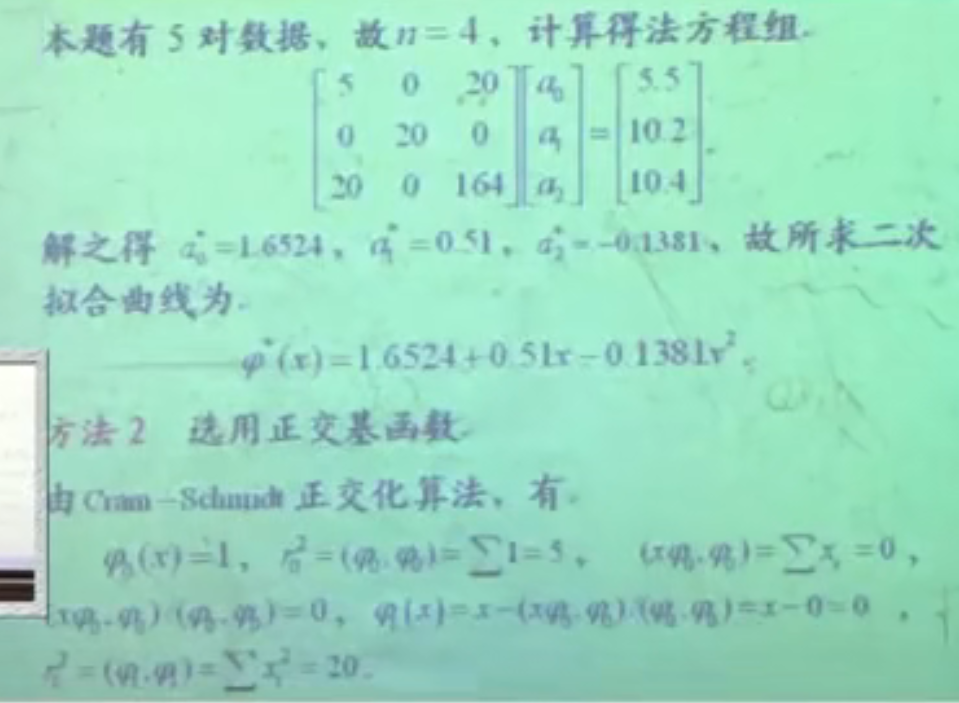 本题有 5 对数据、故n=4、计算得法方程组.
[5 0 20; 0 20 0; 20 0 164][a₀; a₁; a₂]=[5.5; 10.2; 10.4]
解之得 a₀*=1.6524、a₁*=0.51、a₂*=-0.1381、故所求二次
拟合曲线为.
φ*(x)=1.6524+0.51x-0.1381x².
方法 2 选用正交基函数.
由 Cram-Schmidt 正交化算法、有.
φ₀(x)=1, r₀²=(φ₀,φ₀)=∑1=5, (xφ₀,φ₀)=∑xᵢ=0,
(xφ₀,φ₀)/(φ₀,φ₀)=0, φ₁(x)=x-(xφ₀,φ₀)/(φ₀,φ₀)=x-0=0 ,
=(φ₁,φ₁)=∑xᵢ²=20.